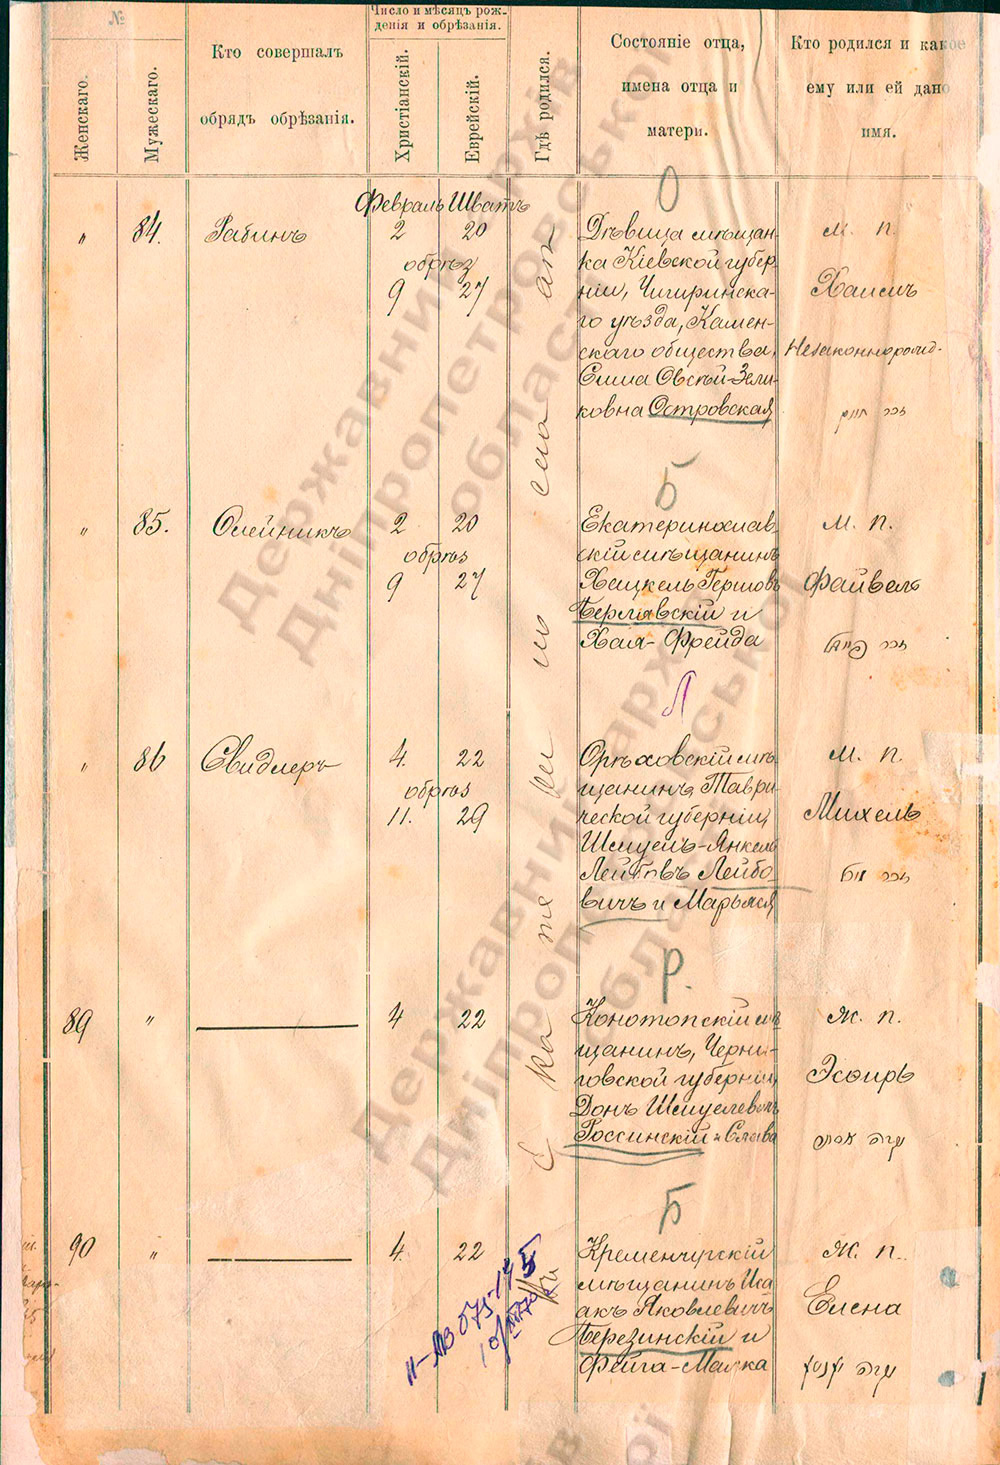 №
Женскаго.
Мужескаго.
Кто совершалъ
обрядъ обрѣзанія.
Число и мѣсяцъ рож-
денія и обрѣзанія.
Христіанскій.
Еврейскій.
Гдѣ родился.
Состояніе отца,
имена отца и
матери.
Кто родился и какое
ему или ей дано
имя.
О
Февраль Шватъ
„ 84. Рабинъ 2 20
обрѣз
9 27
Дѣвица мѣщан-
ка Кіевской губер
ніи, Чигиринска-
го уѣзда, Камен-
скаго общества,
Сима Овсѣй-Зели-
ковна Островская
м. п.
Хаимъ
Незаконнорожд.
זכר חיים
Б
„ 85. Олейникъ 2 20
обрѣз
9 27
Екатеринослав-
скій мѣщанинъ
Хацкель Гершовъ
Берлявскій и
Хая-Фрейда
м. п.
Файвель
זכר פייוול
Л
„ 86 Свидлеръ 4. 22
обрѣз
11. 29
Орѣховскій мѣ-
щанинъ, Таври-
ческой губерніи,
Шмуелъ-Янкель
Лейбовъ Лейбо-
вичъ и Марьяся
м. п.
Михель
זכר
Р.
89 „ 4 22
Конотопскій мѣ
щанинъ, Черни-
говской губерніи,
Донъ Шмуелевичъ
Россинскій и Слава
ж. п.
Эсѳирь
נקבה אסתר
Б
90 „ 4. 22
Кременчугскій
мѣщанинъ Иса
акъ Яковлевичъ
Березинскій и
Фейга-Малка
ж. п.
Елена
נקבה
Державний архів
Дніпропетровської
області
Державний архів
Дніпропетровської
області